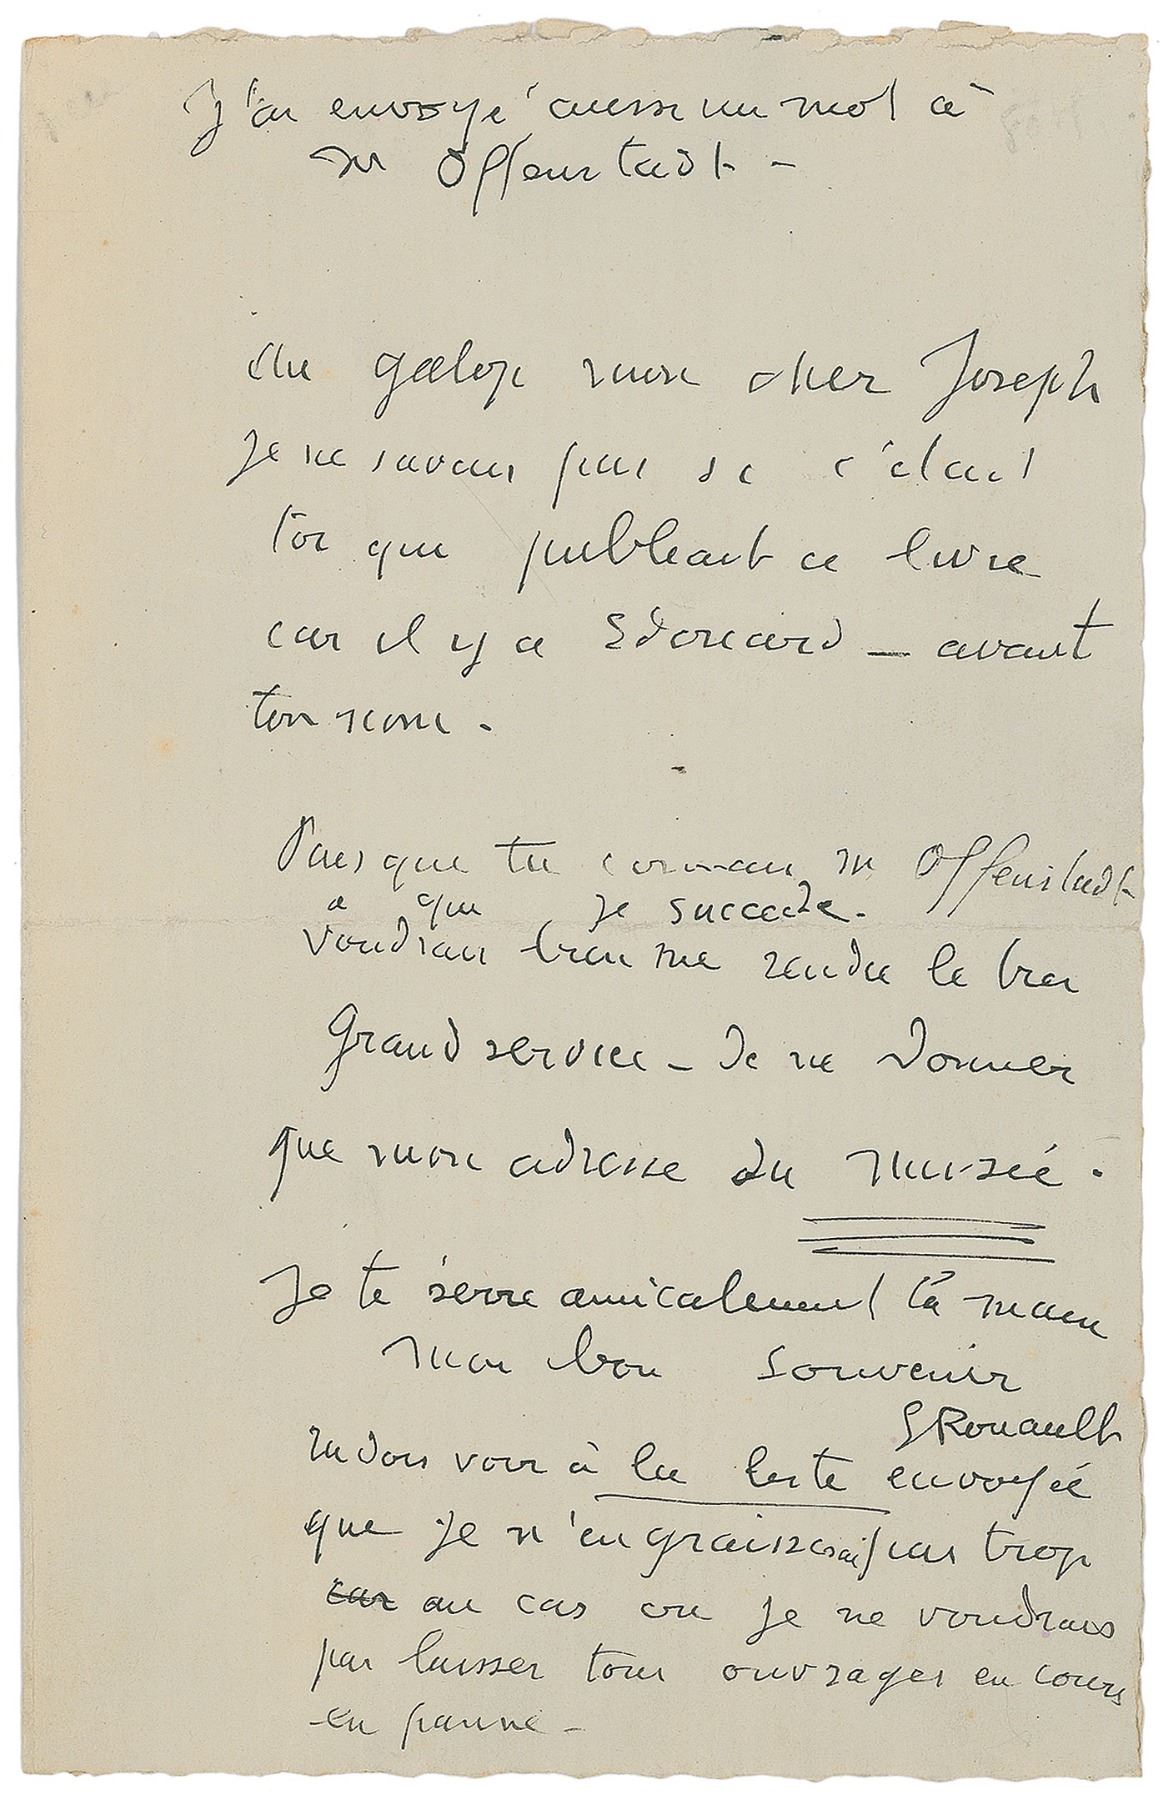 J'ai envoyé aussi un mot à
Mr Offenstadt -
Au galop mon cher Joseph
Je ne savais pas si c'était
toi qui publiait ce livre
car il y a Edouard - avant
ton nom.
Puisque tu connais M Offenstadt
a qui je succede.
voudrais bien me rendre le
Grand service - de ne donner
que mon adresse du musée.
Je te serre amicalement la main
mon bon souvenir
G Rouault
tu dois voir à la liste envoyée
que je n'engraisserai pas trop
car au cas ou je ne voudrais
pas laisser tous ouvrages en cours
en panne -